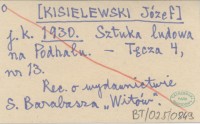 0. [KISIELEWSKI Józef]
j. k. 1930. Sztuka ludowa
na Podhalu. – Tęcza 4,
nr 13.
Rec. o wydawnictwie
S. Barabasza „Witów".
BT/025/0843